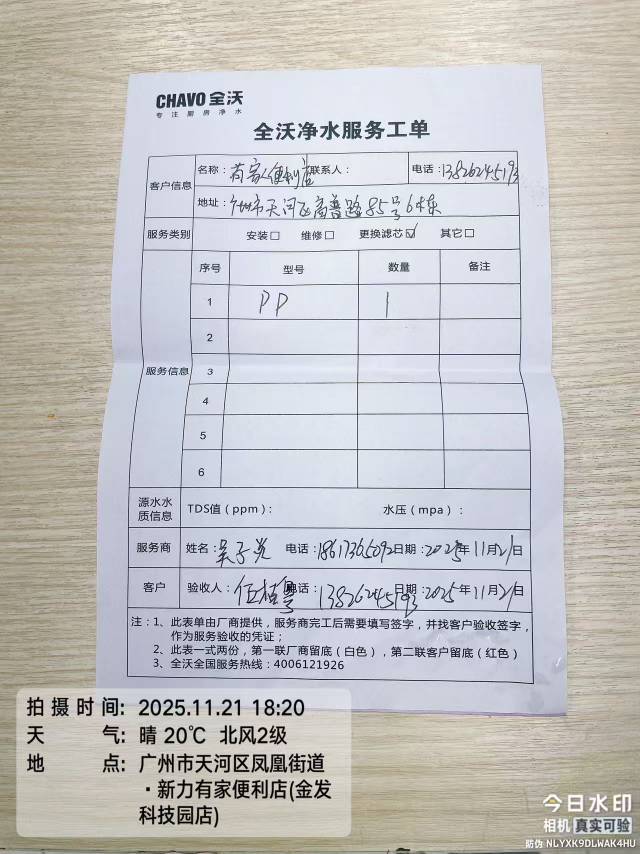 CHAVO 全沃
专注厨房净水
全沃净水服务工单
客户信息 名称：有家便利店 联系人： 电话：13826245193
地址：广州市天河区高普路85号6栋
服务类别 安装□ 维修□ 更换滤芯☑ 其它□
服务信息
序号 型号 数量 备注
1 PP 1
2
3
4
5
6
源水水质信息 TDS值（ppm）： 水压（mpa）：
服务商 姓名： 电话：18617365092 日期：2025年11月21日
客户 验收人：伍植粤 电话：13826245193 日期：2025年11月21日
注：1、此表单由厂商提供，服务商完工后需要填写签字，并找客户验收签字，
作为服务验收的凭证；
2、此表一式两份，第一联厂商留底（白色），第二联客户留底（红色）
3、全沃全国服务热线：4006121926
拍摄时间：2025.11.21 18:20
天气：晴 20℃ 北风2级
地点：广州市天河区凤凰街道
·新力有家便利店(金发
科技园店)
今日水印
相机 真实可验
防伪 NLYXK9DLWAK4HU